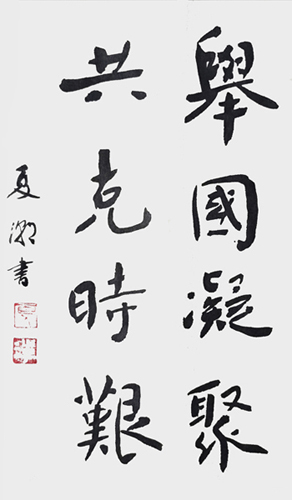 舉國凝聚
共克時艱
夏潮書